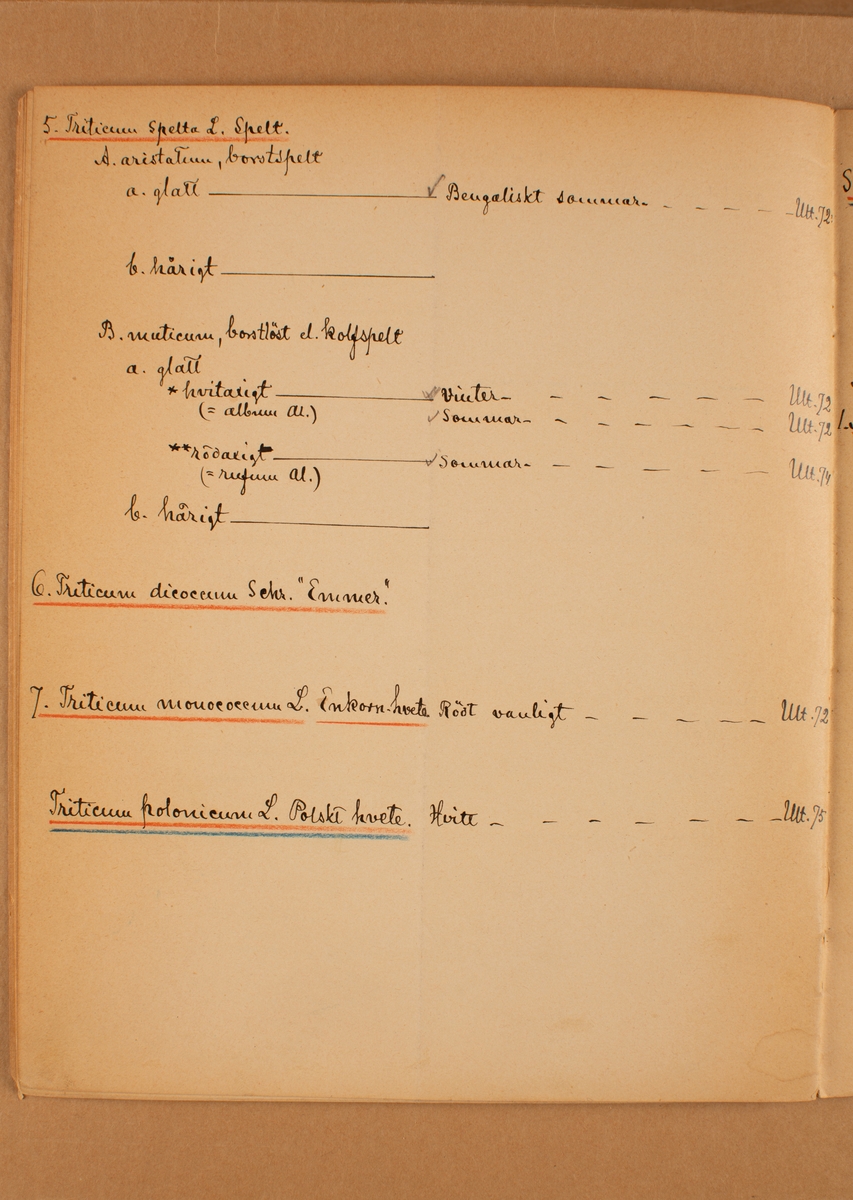 5. Triticum Spelta L. Spelt.
A. aristatum, borstspelt
a. glatt ✓ Bengaliskt sommar- - - - - - Utt. 72
b. hårigt
B. muticum, borstlöst el. kolfspelt
a. glatt
* hvitaxigt ✓ Vinter- - - - - - Utt. 72
(= album Al.) ✓ Sommar- - - - - - Utt. 72
** rödaxigt ✓ Sommar- - - - - - Utt. 74
(= rufum Al.)
b. hårigt
6. Triticum dicoccum Schr. "Emmer."
7. Triticum monococcum L. Enkorn-hvete Rödt vanligt - - - - - Utt. 72
Triticum polonicum L. Polskt hvete. Hvitt - - - - - - - Utt. 75